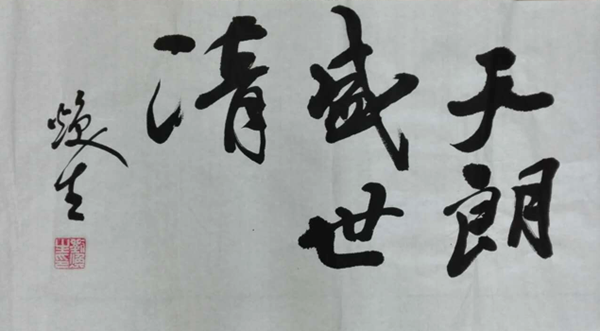 天朗
盛世
清
焕生